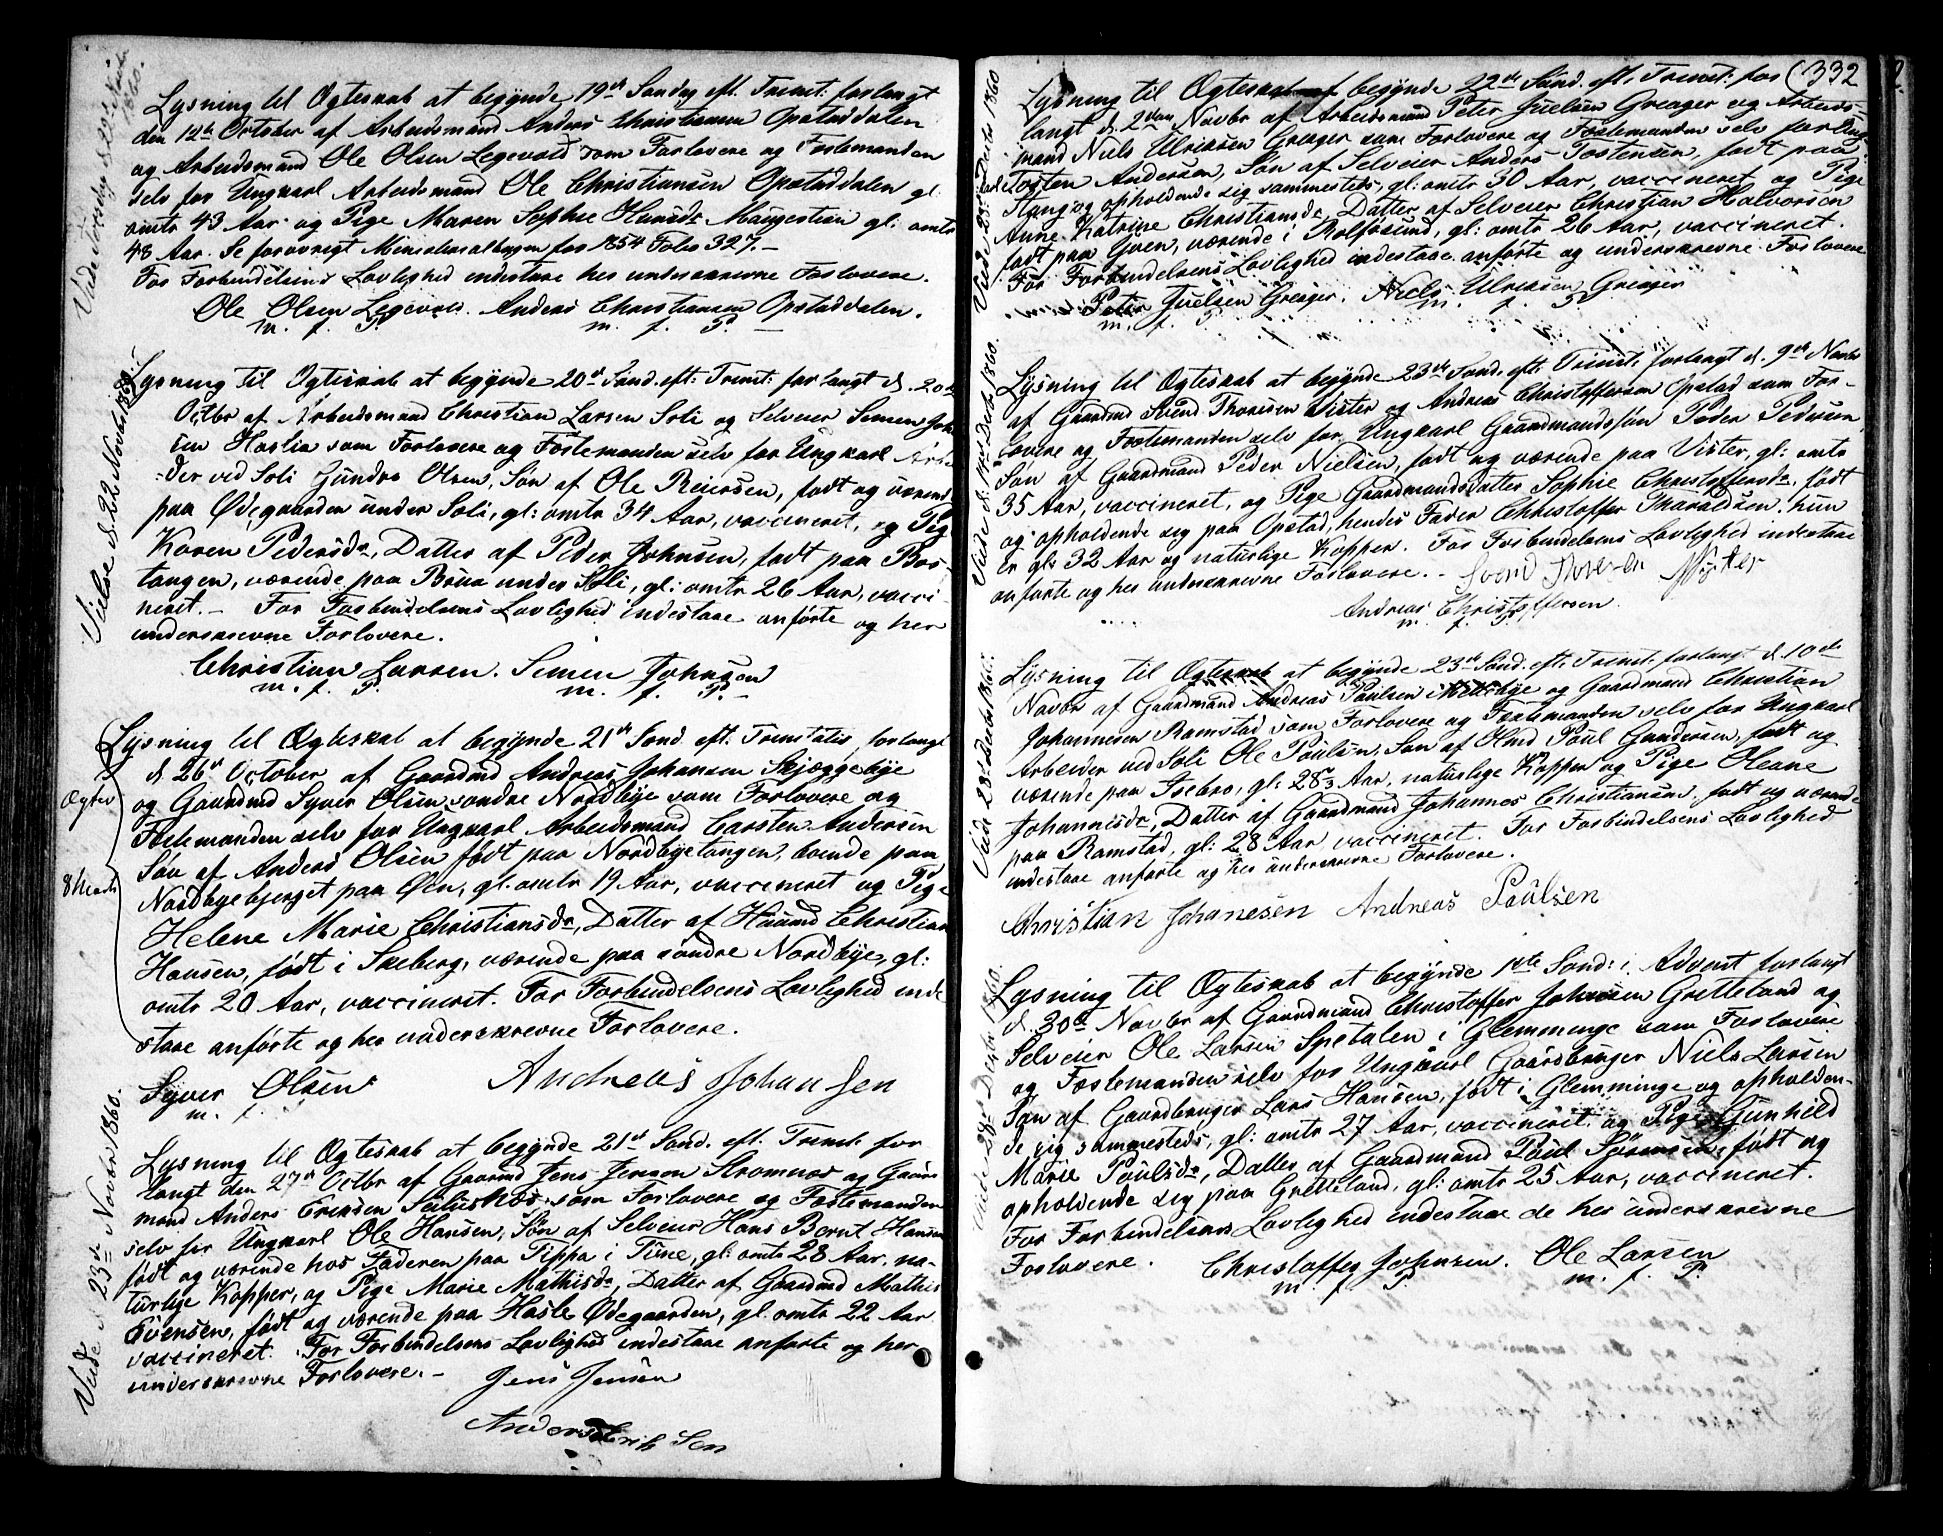 Viede Torsdag d. 29de Novbr 1860.
Lysning til Ægteskab at begynde 19de Søndag eft. Trinit. forlangt
den 12te October af Arbeidsmand Anders Christiansen Opstaddalen
og Arbeidsmand Ole Olsen Legevold som Forlovere og Fæstemanden
selv for Ungkarl Arbeidsmand Ole Christiansen Opstaddalen gl.
omtr 43 Aar og Pige Maren Sophie Hansdr Maugestien gl: omtr
48 Aar. Se forøvrigt Ministerialbogen for 1854 Folio 327.-
For Forbindelsens Lovlighed indestaae her underskrevne Forlovere.
Ole Olsen Legevold. Anders Christiansen Opstaddalen.
m. f. P. m. f. P.
Viede d. 22 Novbr 1860.
Lysning til Ægteskab at begynde 20de Sønd. eft. Trinit: forlangt d. 20de
Octbr af Arbeidsmand Christian Larsen Soli og Selveier Simen John
sen Haslia som Forlovere og Fæstemanden selv for Ungkarl Arbei
der ved Soli Gundro Olsen, Søn af Ole Reiersen, født og værend
paa Ødegaarden under Soli, gl: omtr 34 Aar, vaccineret, og Pig
Karen Pedersdr, Datter af Peder Johnsen, født paa Bos-
tangen, værende paa Brua under Soli, gl: omtr 26 Aar, vacci-
neret.- For Forbindelsens Lovlighed indestaae anførte og her
underskrevne Forlovere.
Christian Larsen. Simen Johnsen
m. f. P. m. f. P.
Lysning til Ægteskab at begynde 21de Sønd. eft. Trinitatis forlangt
d. 26de October af Gaardmd Andreas Johansen Skjæggebye
og Gaardmd Syver Olsen søndre Nordbye som Forlovere og
Fæstemanden selv for Ungkarl Arbeidsmand Carsten Andersen
Søn af Anders Olsen født paa Nordbyetangen, boende paa
Nordbyebjerget paa Øen, gl. omtr 19 Aar, vaccineret og Pige
Helene Marie Christiansdr, Datter af Huusmd Christian
Hansen, født i Skeberg, værende paa søndre Nordbye, gl:
omtr 20 Aar, vaccineret. For Forbindelsens Lovlighed inde
staae anførte og her underskrevne Forlovere.
Syver Olsen Andreas Johansen
m. f.
Viede d. 23de Novbr 1860.
Lysning til Ægteskab at begynde 21de Sønd. eft. Trinit. for
langt den 27de Octbr af Gaardmd Jens Jensen Strømnes og Gaard
mand Anders Eriksen som Forlovere og Fæstemanden
selv for Ungkarl Ole Hansen, Søn af Selveier Hans Bernt Hansen
født og værende hos Faderen paa Tippa i Tune, gl: omtr 28 Aar, na-
turlige Kopper, og Pige Marie Mathisdr, Datter af Gaardmd Mathis
Evensen, født og værende paa Hasle Ødegaarden, gl. omtr 22 Aar
vaccineret. For Forbindelsens Lovlighed indestaae anførte og her
underskrevne Forlovere.-
Jens Jensen
Anders Erik Sen
(332
Viede d. 28de Decbr 1860
Lysning til Ægteskab at begynde 22de Sønd. eft. Trinit: for
langt d. 2den Novbr af Arbeidsmand Peter Juelsen Greager og Arbeids-
mand Niels Ulriksen Greager som Forlovere og Fæstemanden selv for Ung.
Tosten Andersen, Søn af Selveier Anders Tostensen, født paa
Stang og opholdende sig sammesteds, gl: omtr 30 Aar, vaccineret og Pige
Anne Katrine Christiansdr, Datter af Selveier Christian Halvorsen
født paa Gven, værende i Rolfsøsund, gl: omtr 26 Aar, vaccineret.
For Forbindelsens Lovlighed indestaae anførte og underskrevne Forlovere
Peter Juelsen Greager. Niels Ulriksen Greager
m. f. P. m. f. P.
Viede d. 14de Decbr 1860.
Lysning til Ægteskab at begynde 23de Sønd. eft. Trinit. forlangt d. 9de Novbr
af Gaardmd Svend Thoresen Vister og Andreas Christoffersen Opstad som For-
lovere og Fæstemanden selv for Ungkarl Gaardmandssøn Peder Pedersen
Søn af Gaardmand Peder Nielsen, født og værende paa Vister, gl: omtr
35 Aar, vaccineret, og Pige Gaardmandsdatter Sophie Christoffersdr, født
og opholdende sig paa Opstad, hendes Fader Christoffer Tharaldsen, hun
er gl: 32 Aar og naturlige Kopper. For Forbindelsens Lovlighed indestaae
anførte og her underskrevne Forlovere.- Svend Thoresen
Andreas Christoffersen
m. f. P.
Viede 28de Decbr 1860.
Lysning til Ægteskab at begynde 23de Sønd. eft. Trinit. forlangt d. 10de
Novbr af Gaardmand Andreas Paulsen og Gaardmand Christian
Johannesen Ramstad som Forlovere og Fæstemanden selv for Ungkarl
Arbeider ved Soli Ole Paulsen, Søn af Paul Gundersen, født og
værende paa Isebro, gl: 28 Aar, naturlige Kopper og Pige Oleane
Johannisdr, Datter af Gaardmand Johannes Christiansen, født og værende
paa Ramstad, gl: 28 Aar vaccineret. For Forbindelsens Lovlighed
indestaae anførte og her underskrevne Forlovere.
Christian Johanesen Andreas Paulsen
Viede 28de Decbr 1860.
Lysning til Ægteskab at begynde 1ste Sønd: i Advent forlangt
d. 30te Novbr af Gaardmand Christoffer Johnsen Gretteland og
Selveier Ole Larsen Spetalen i Glemminge som Forlovere
og Fæstemanden selv for Ungkarl Gaardbruger Niels Larsen
Søn af Gaardbruger Lars Hansen, født i Glemminge og opholden-
de sig sammesteds, gl: omtr 27 Aar, vaccineret. og Pige Gunhild
Marie Paulsdr, Datter af Gaardmand Paul Sørensen, født og
opholdende sig paa Gretteland, gl: omtr 25 Aar, vaccineret.
For Forbindelsens Lovlighed indestaae de her underskrevne
Forlovere. Christoffer Johnsen. Ole Larsen
m. f. P. m. f. P.